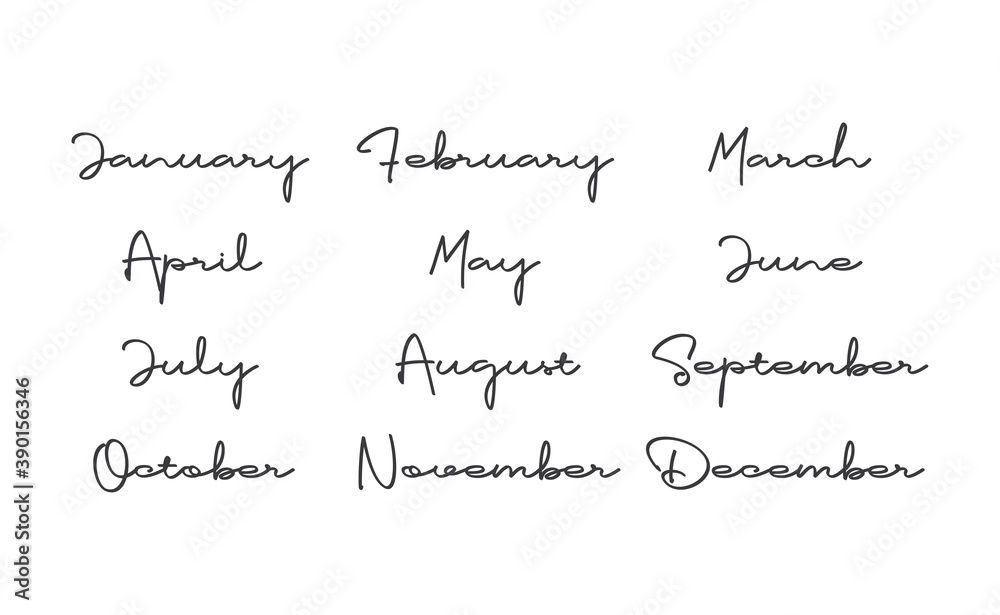 January February March
April May June
July August September
October November December
Adobe Stock | #390156346
Adobe Stock